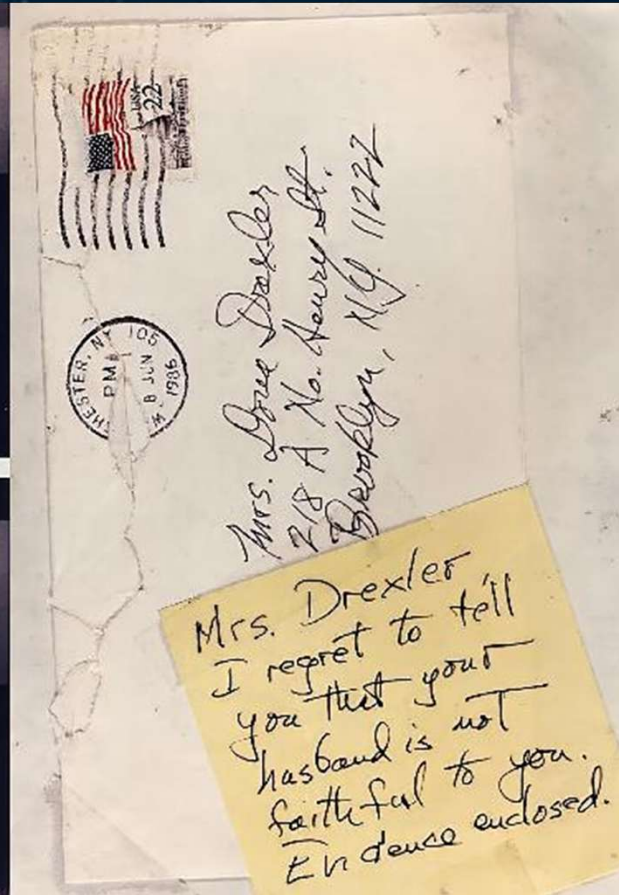 USA
22
CHESTER, NY 105
PM
8 JUN
1986
W.
Mrs. Drexler
218 A No. Henry St.
Brooklyn, N.Y. 11222
Mrs. Drexler
I regret to tell
you that your
husband is not
faithful to you.
Evidence enclosed.